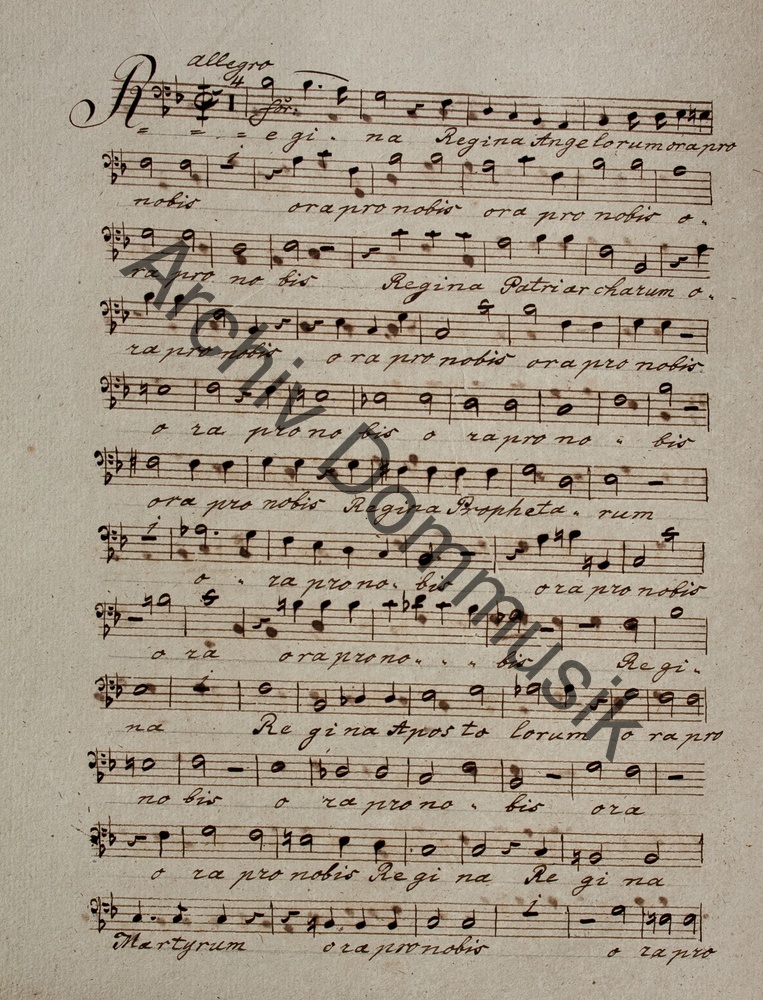 allegro
4
for:
R = = = e gi - na Regina Angelorum ora pro
1
nobis ora pro nobis ora pro nobis o -
ra pro no bis Regina Patriarcharum o -
ra pro nobis o ra pro nobis ora pro nobis
o ra pro no bis o ra pro no - bis
ora pro nobis Regina Propheta - rum
1
o - ra pro no - bis ora pro nobis
o ra ora pro no - - - bis Regi -
1
na Re gina Apos to lorum o ra pro
no bis o ra pro no - bis ora
o ra pro nobis Regi na Re gi na
1
Martyrum ora pro nobis o ra pro
Archiv Dommusik